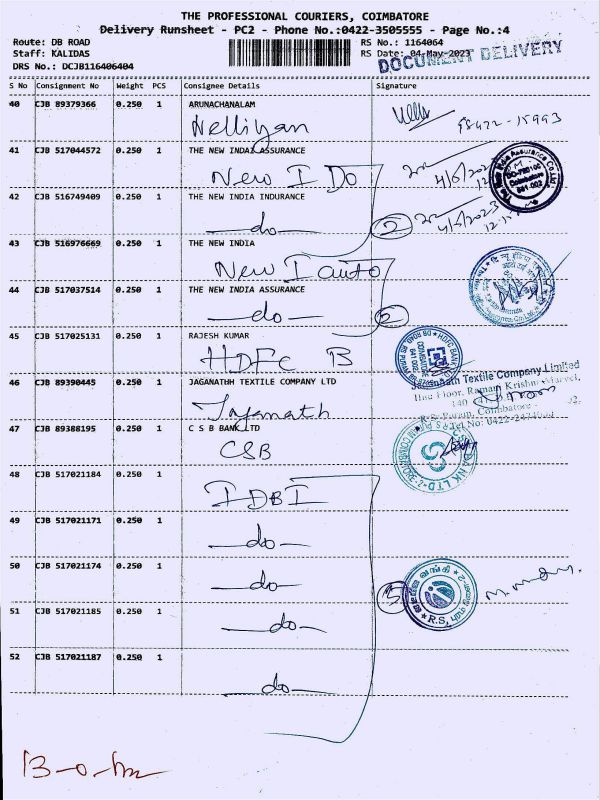 THE PROFESSIONAL COURIERS, COIMBATORE
Delivery Runsheet - PC2 - Phone No.:0422-3505555 - Page No.:4
Route: DB ROAD RS No.: 1164064
Staff: KALIDAS RS Date: 04-May-2023
DRS No.: DCJB116406404 DOCUMENT DELIVERY
S No Consignment No Weight PCS Consignee Details Signature
40 CJB 89379366 0.250 1 ARUNACHANALAM
Nelliyan
41 CJB 517044572 0.250 1 THE NEW INDAI ASSURANCE
New I Do
42 CJB 516749409 0.250 1 THE NEW INDIA INDURANCE
-do- 2
43 CJB 516976669 0.250 1 THE NEW INDIA
New I auto
44 CJB 517037514 0.250 1 THE NEW INDIA ASSURANCE
-do- 2
45 CJB 517025131 0.250 1 RAJESH KUMAR
HDFC B
HDFC BANK
46 CJB 89390445 0.250 1 JAGANATHH TEXTILE COMPANY LTD
Jaganath
Jagannath Textile Company Limited
47 CJB 89388195 0.250 1 C S B BANK LTD
CSB
48 CJB 517021184 0.250 1
IDBI
49 CJB 517021171 0.250 1
-do-
50 CJB 517021174 0.250 1
-do- 5
51 CJB 517021185 0.250 1
-do-
52 CJB 517021187 0.250 1
-do-